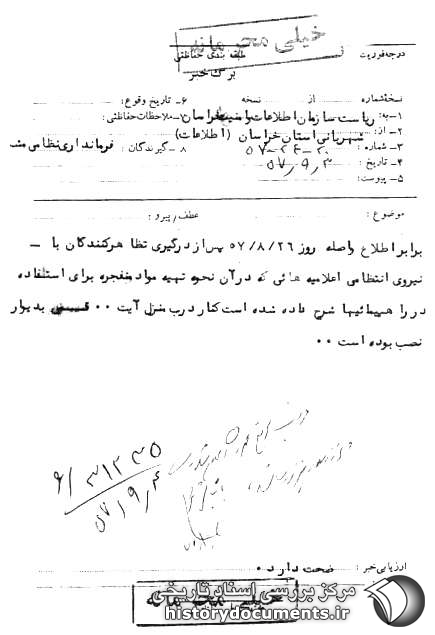 خیلی محرمانه
درجه فوریت طبقه بندی حفاظتی
برگ خبر
نسخه شماره از نسخه ۶- تاریخ وقوع:
۱- به: ریاست سازمان اطلاعات وامنیت خراسان ۷- ملاحظات حفاظتی:
۲- از: شهربانی استان خراسان (اطلاعات)
۳- شماره: ۵۷-۲۶-۲۰ ۸- گیرندگان: فرمانداری نظامی مشهد
۴- تاریخ: ۵۷٫۹٫۳
۵- پیوست:
موضوع: عطف/پیرو:
برابر اطلاع واصله روز ۵۷/۸/۲۶ پس از درگیری تظاهرکنندگان با -
نیروی انتظامی اعلامیه هائی که در آن نحوه تهیه مواد منفجره برای استفاده
در راهپیمائیها شرح داده شده است کنار درب منزل آیت ۰۰ قمی بدیوار
نصب بوده است ۰۰
۶/۳۱۲۳۵
۵۷/۹٫۴
ارزیابی خبر: صحت دارد۰
مرکز بررسی اسناد تاریخی
historydocuments.ir